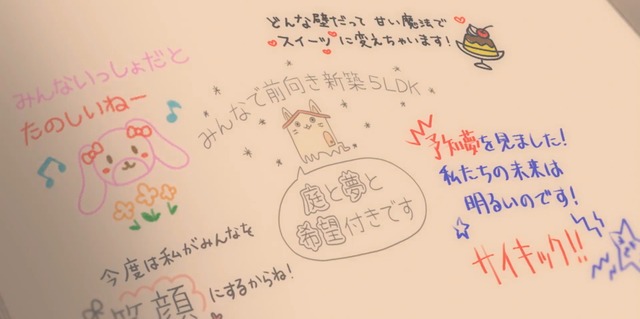 どんな壁だって 甘い魔法で
スイーツに変えちゃいます!
みんないっしょだと
たのしいねー
みんなで前向き新築5LDK
庭と夢と
希望付きです
予知夢を見ました!
私たちの未来は
明るいのです!
サイキック!!
今度は私がみんなを
笑顔にするからね!